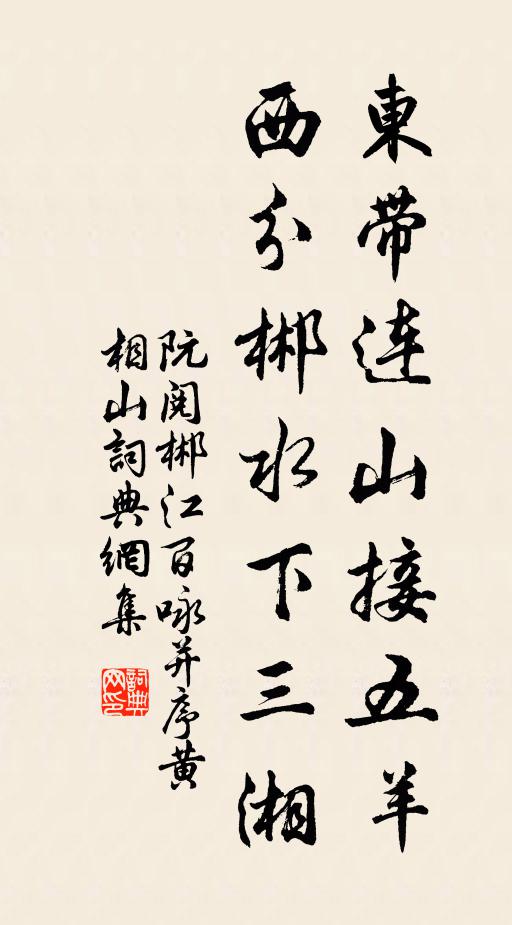 東帶連山接五羊
西分郴水下三湘
阮閱郴江百咏并序黄
相山詞典網集
詞典网印